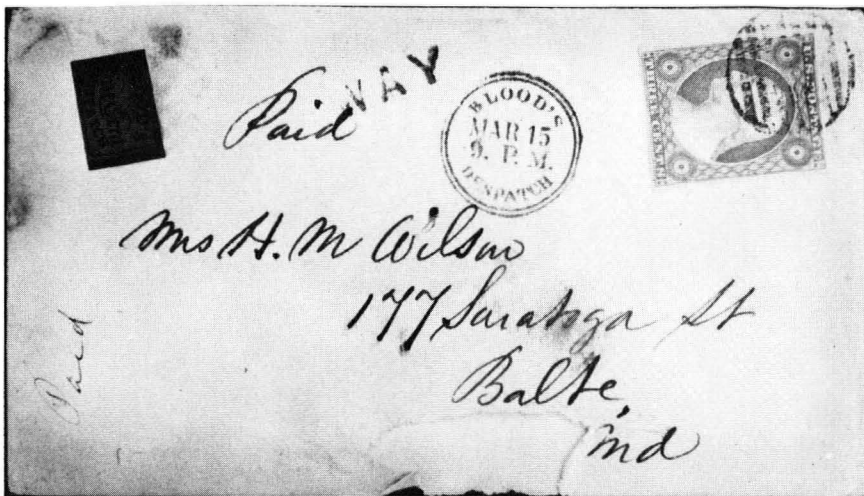 WAY
Paid
BLOOD'S
MAR 15
9. P. M.
DESPATCH
Mrs H. M Wilson
177 Saratoga St
Balto,
Md
Paid